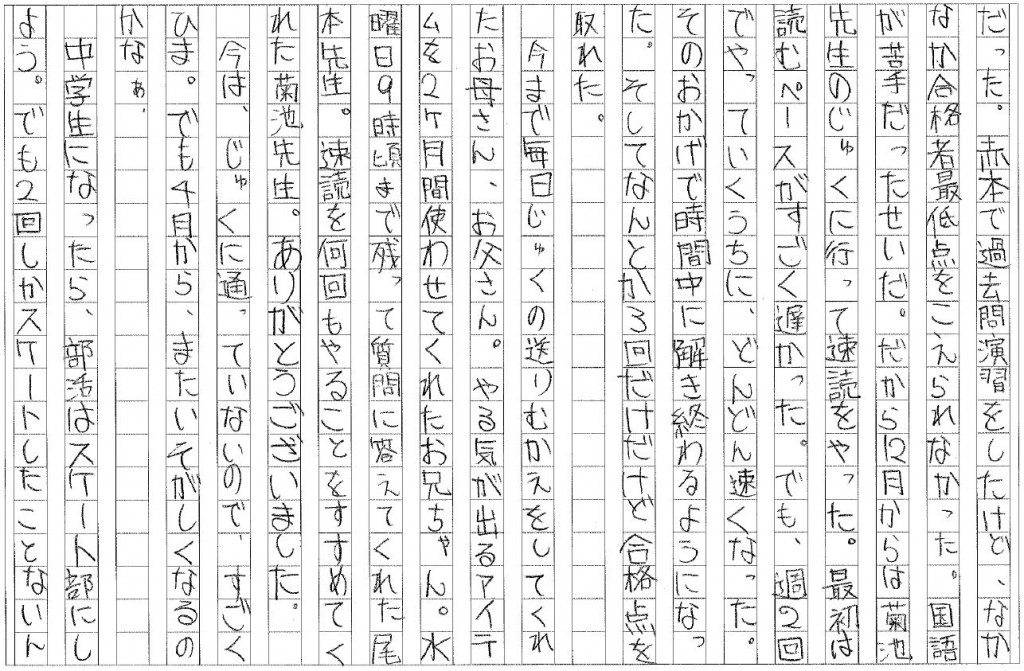 だった。赤本で過去問演習をしたけど、なか
なか合格者最低点をこえられなかった。国語
が苦手だったせいだ。だから12月からは菊池
先生のじゅくに行って速読をやった。最初は
読むペースがすごく遅かった。でも、週2回
でやっていくうちに、どんどん速くなった。
そのおかげで時間中に解き終わるようになっ
た。そしてなんとか3回だけだけど合格点を
取れた。
今まで毎日じゅくの送りむかえをしてくれ
たお母さん、お父さん。やる気が出るアイテ
ムを2ヶ月間使わせてくれたお兄ちゃん。水
曜日9時頃まで残って質問に答えてくれた尾
本先生。速読を何回もやることをすすめてく
れた菊池先生。ありがとうございました。
今は、じゅくに通っていないので、すごく
ひま。でも4月から、またいそがしくなるの
かなぁ、
中学生になったら、部活はスケート部にし
よう。でも2回しかスケートしたことないん